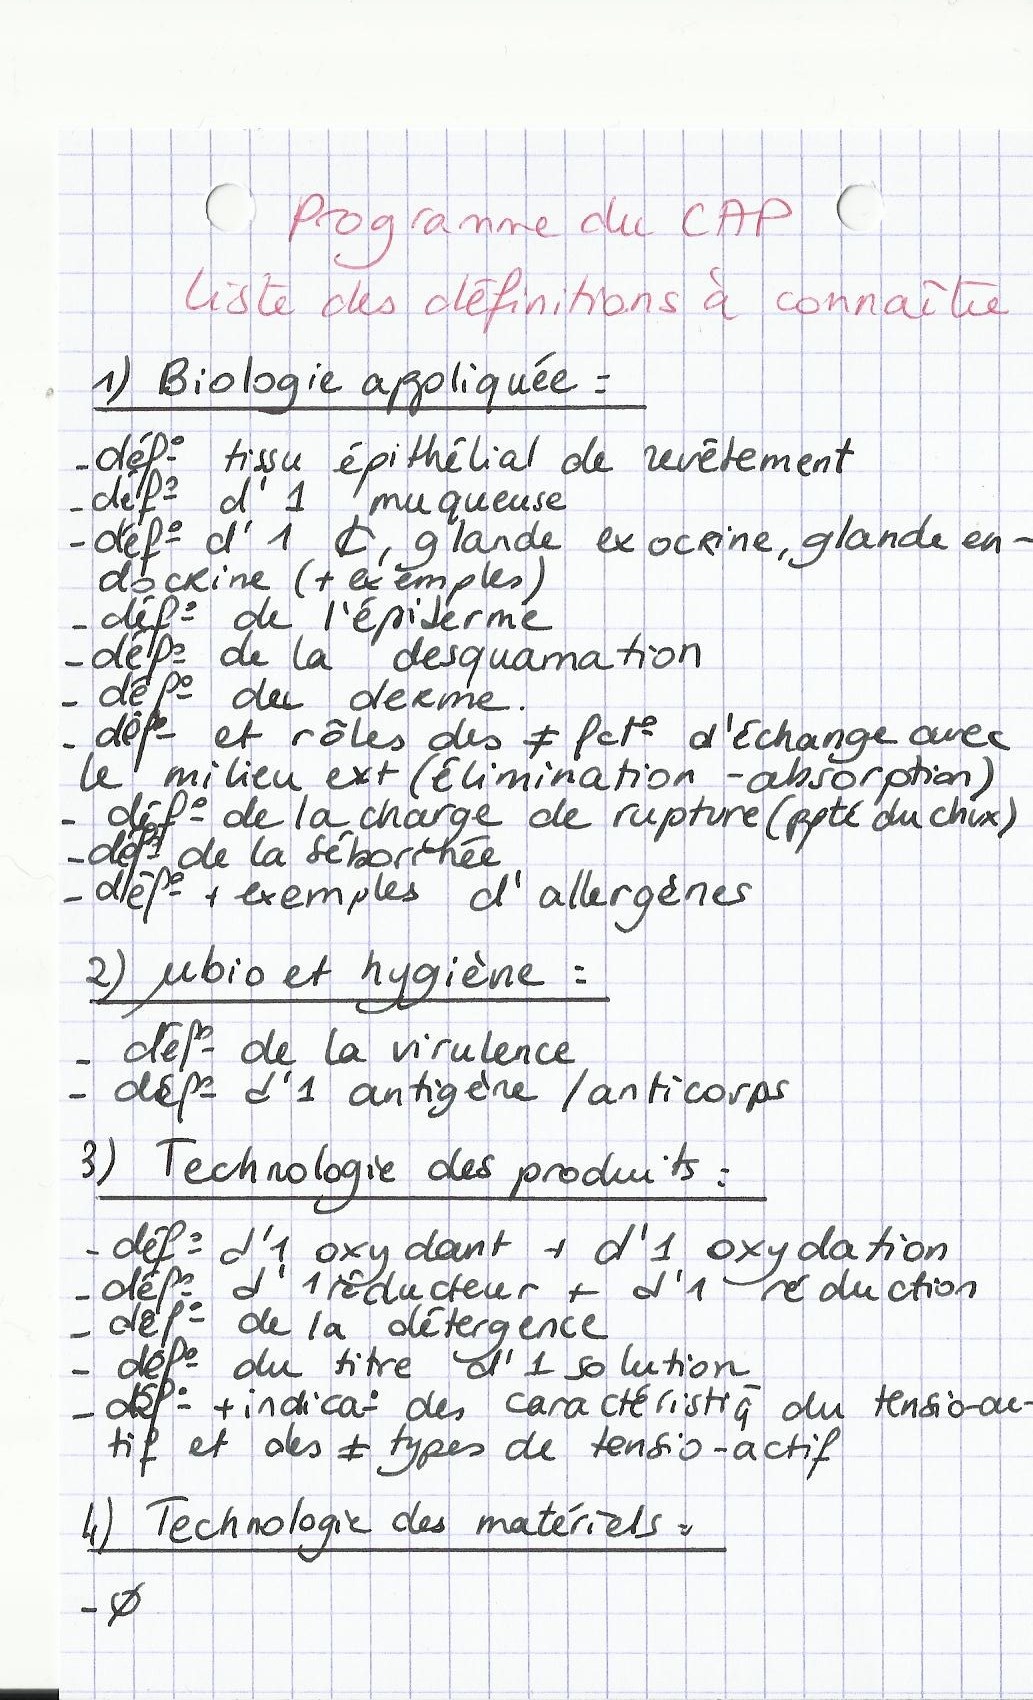 Programme du CAP
Liste des définitions à connaître
1) Biologie appliquée :
- déf° tissu épithélial de revêtement
- déf° d'1 muqueuse
- déf° d'1 ₵, glande exocrine, glande en-
docrine (+ exemples)
- déf° de l'épiderme
- déf° de la desquamation
- déf° du derme.
- déf° et rôles des ≠ fct° d'échange avec
le milieu ext (élimination - absorption)
- déf° de la charge de rupture (ppté du chvx)
- déf° de la séborrhée
- déf° + exemples d'allergènes
2) µbio et hygiène :
- déf° de la virulence
- déf° d'1 antigène / anticorps
3) Technologie des produits :
- déf° d'1 oxydant + d'1 oxydation
- déf° d'1 réducteur + d'1 réduction
- déf° de la détergence
- déf° du titre d'1 solution
- déf° + indica° des caractéristiq̄ du tensio-ac-
tif et des ≠ types de tensio-actif
4) Technologie des matériels :
- Ø